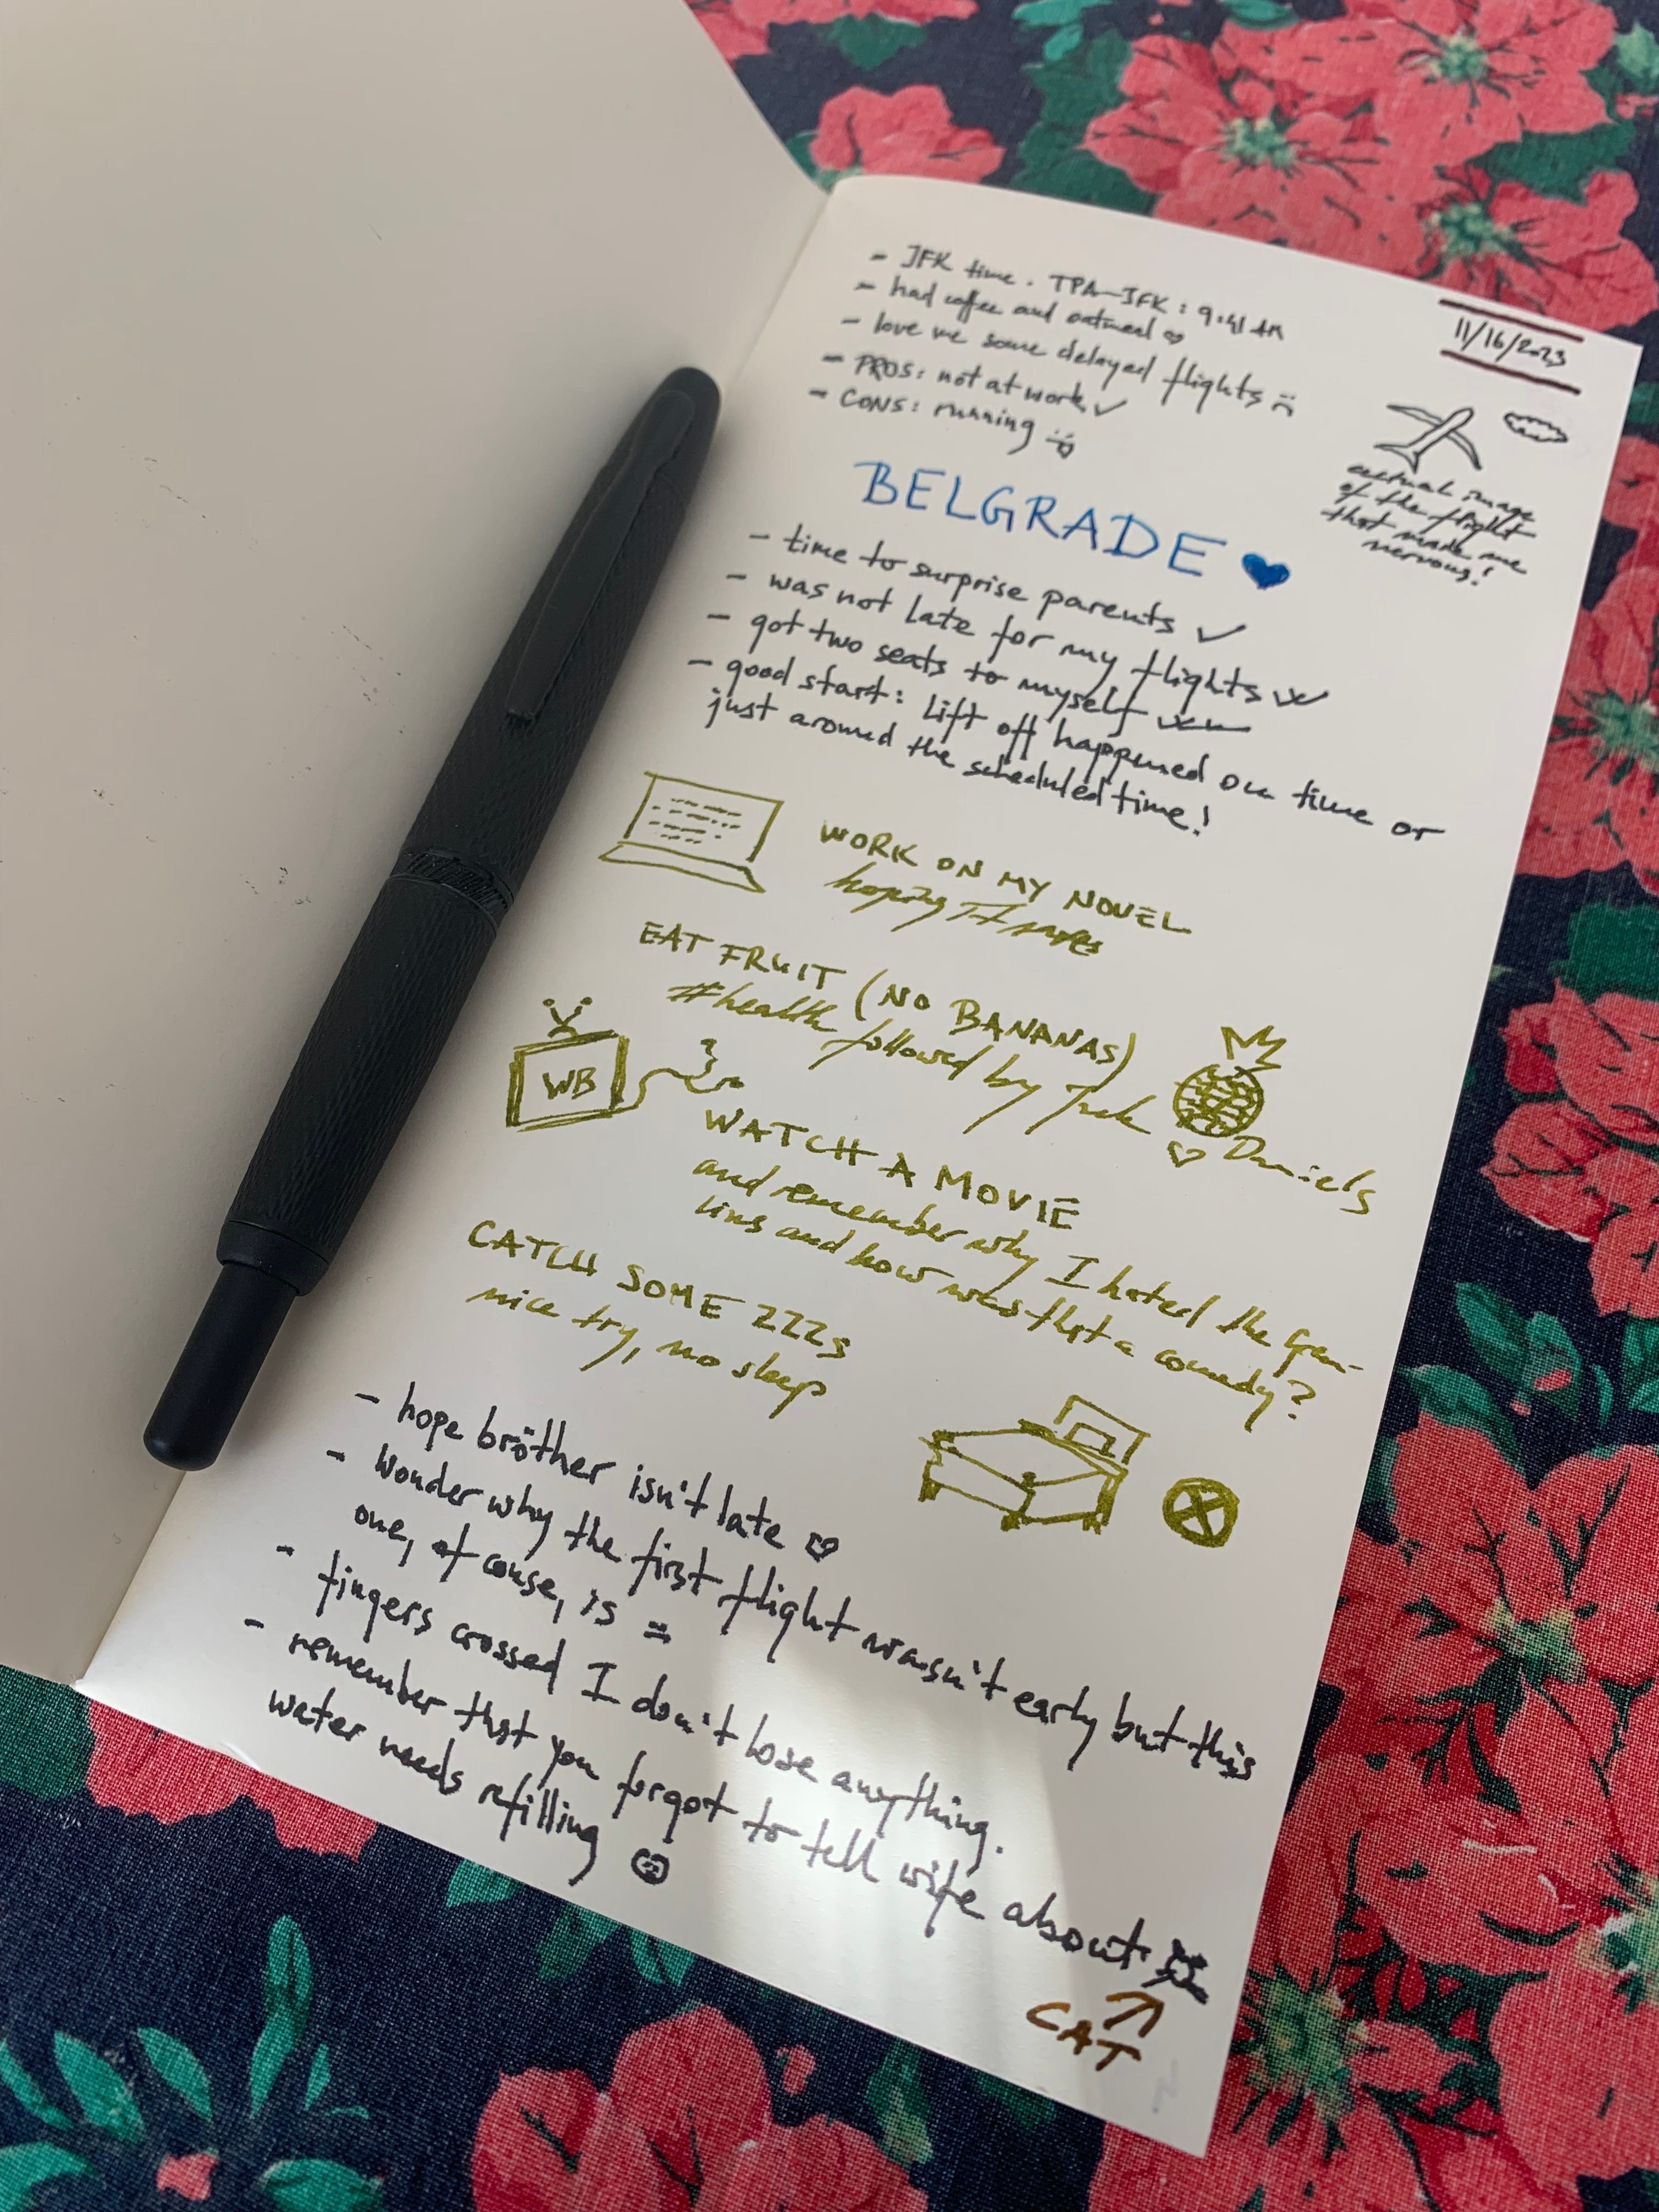 - JFK time. TPA-JFK: 9:41 AM
- had coffee and oatmeal ♡
- love me some delayed flights
- PROS: not at work ✓
- CONS: running
11/16/2023
actual image
of the flight
that made me
nervous!
BELGRADE ♥
- time to surprise parents ✓
- was not late for my flights ✓✓
- got two seats to myself ✓✓✓
- good start: lift off happened on time or
just around the scheduled time!
WORK ON MY NOVEL
hoping it saves
EAT FRUIT (NO BANANAS)
#health followed by Jack
♡ Daniels
WB
WATCH A MOVIE
and remember why I hated the Grem-
lins and how was that a comedy?
CATCH SOME ZZZs
nice try, no sleep
- hope bröther isn't late ♡
- Wonder why the first flight wasn't early but this
one, of couse, is =
- fingers crossed I don't lose anything.
- remember that you forgot to tell wife about
water needs refilling
CAT